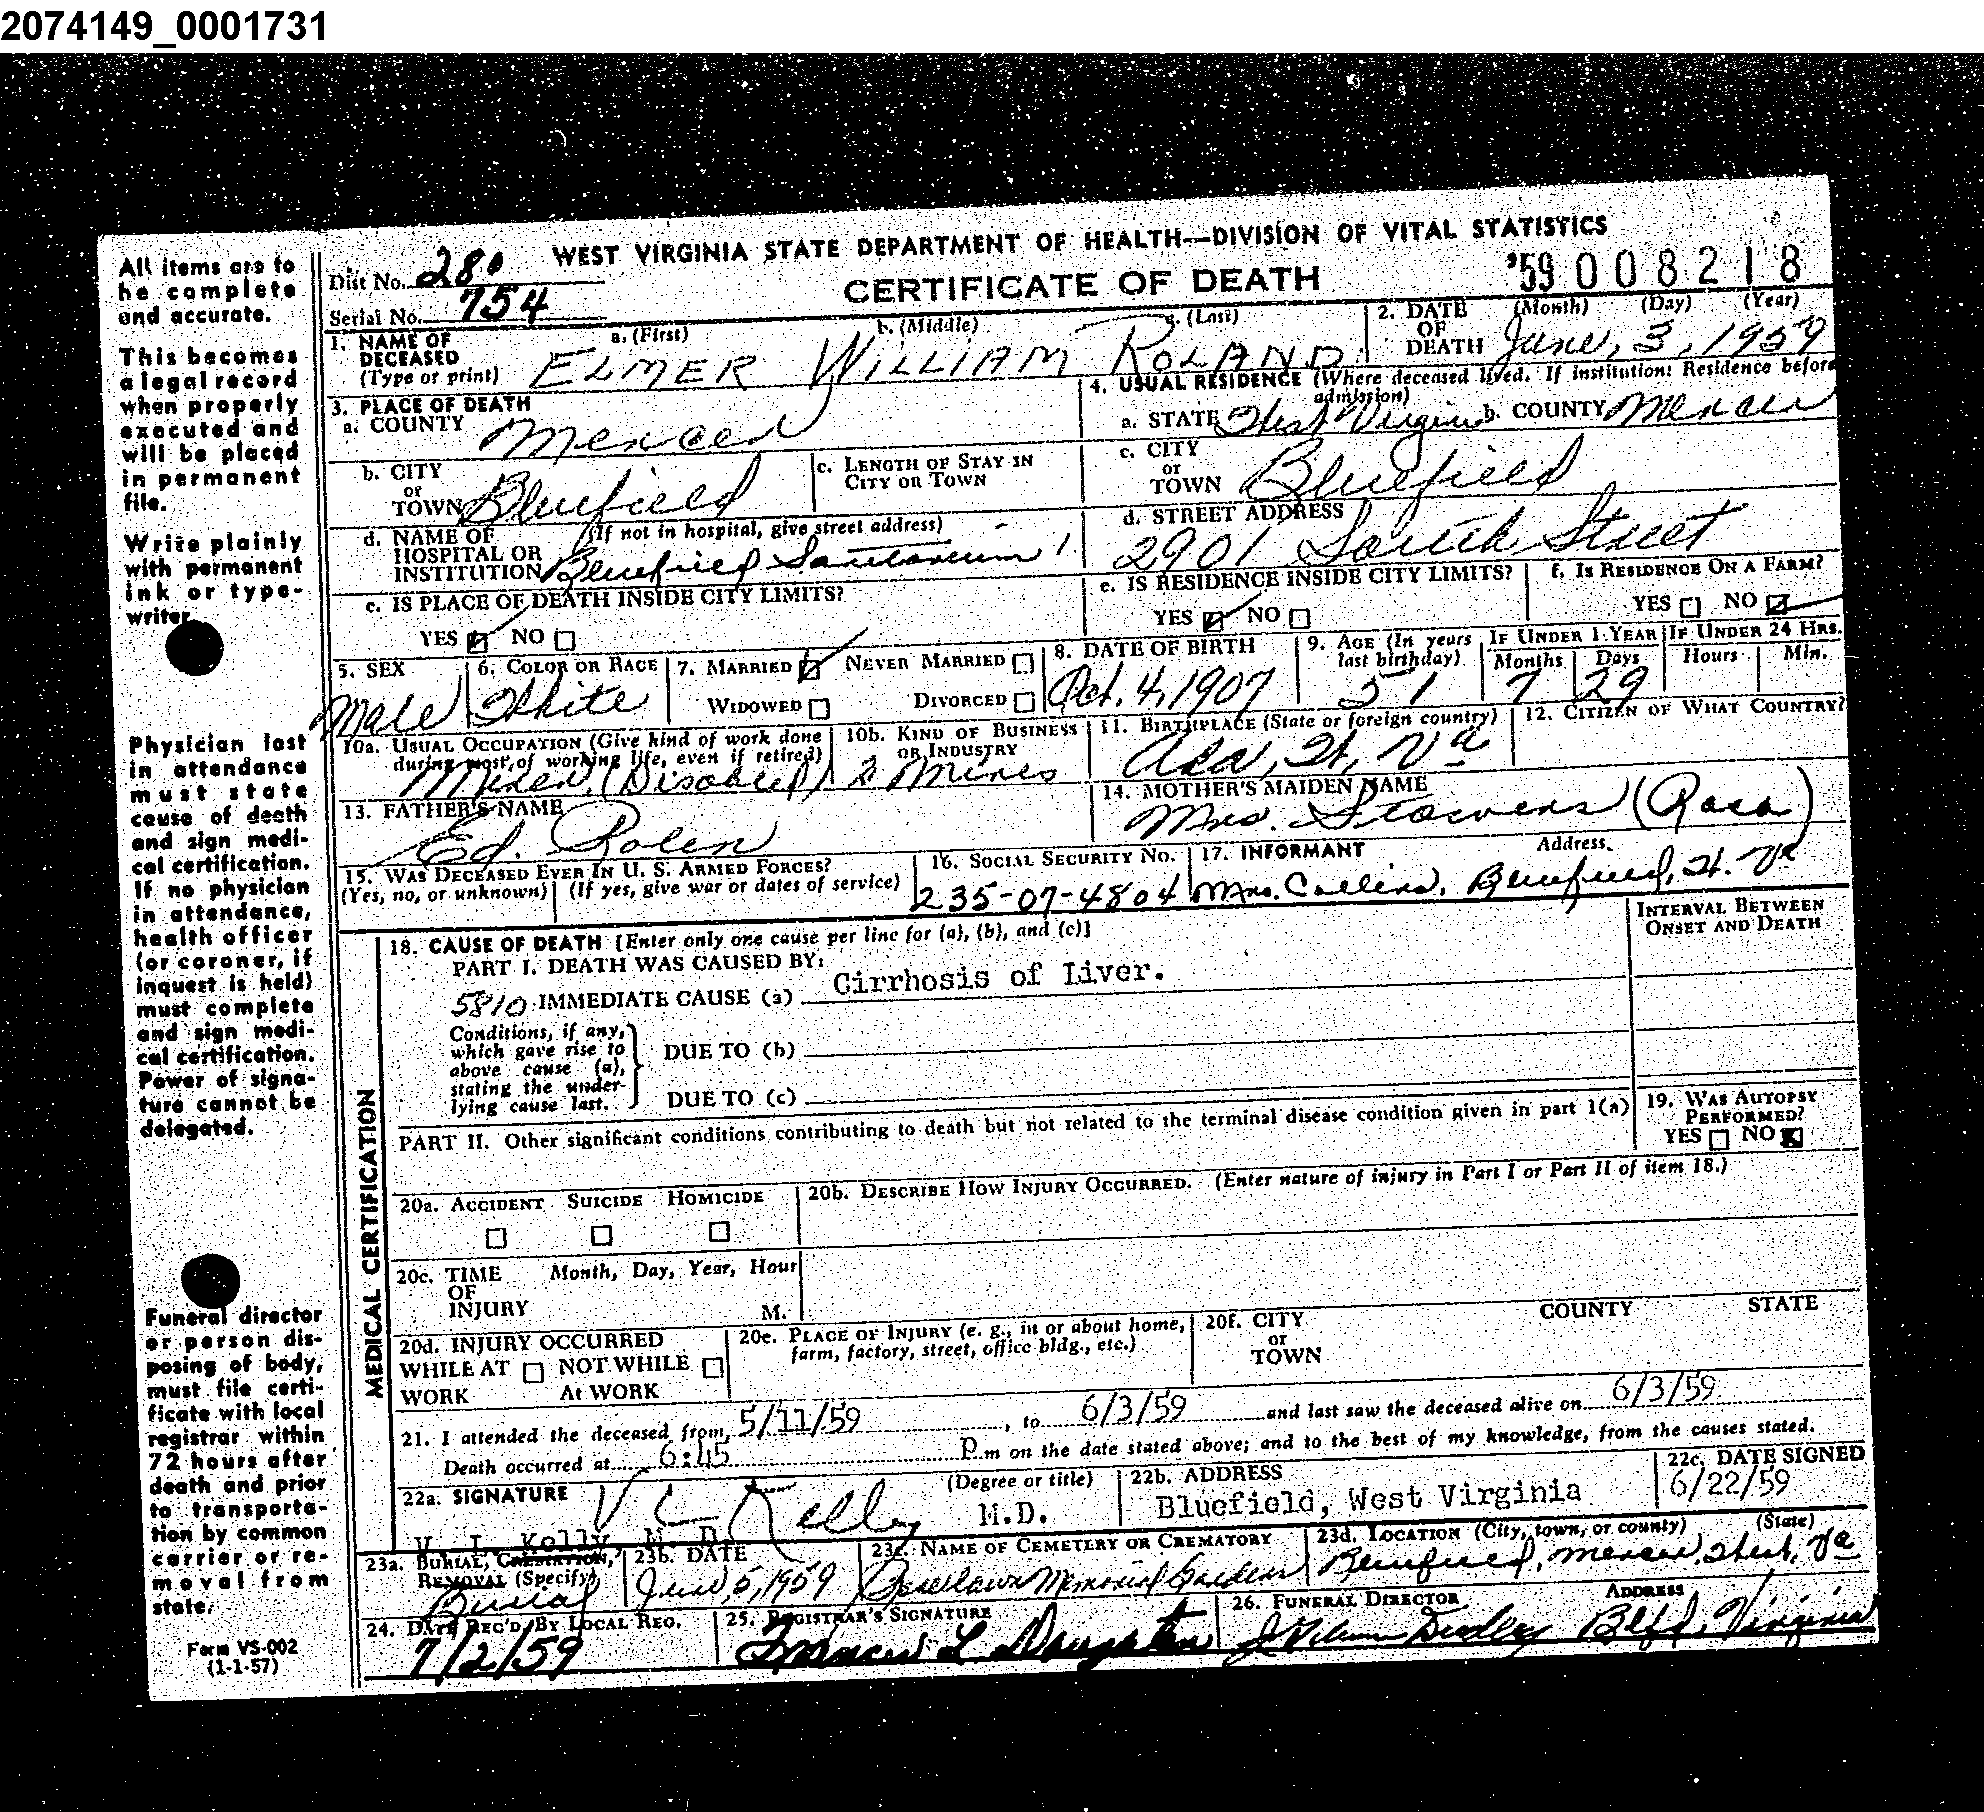 2074149_0001731
WEST VIRGINIA STATE DEPARTMENT OF HEALTH—DIVISION OF VITAL STATISTICS
CERTIFICATE OF DEATH
'59 008218
Dist No. 280
Serial No. 754
All items are to
be complete
and accurate.
This becomes
a legal record
when properly
executed and
will be placed
in permanent
file.
Write plainly
with permanent
ink or type-
writer.
Physician last
in attendance
must state
cause of death
and sign medi-
cal certification.
If no physician
in attendance,
health officer
(or coroner, if
inquest is held)
must complete
and sign medi-
cal certification.
Power of signa-
ture cannot be
delegated.
Funeral director
or person dis-
posing of body,
must file certi-
ficate with local
registrar within
72 hours after
death and prior
to transporta-
tion by common
carrier or re-
moval from
state.
Form VS-002
(1-1-57)
1. NAME OF DECEASED (Type or print) a. (First) b. (Middle) c. (Last)
ELMER WILLIAM ROLAND
2. DATE OF DEATH (Month) (Day) (Year)
June, 3, 1959
3. PLACE OF DEATH
a. COUNTY Mercer
b. CITY or TOWN Bluefield
c. LENGTH OF STAY IN CITY OR TOWN
d. NAME OF HOSPITAL OR INSTITUTION (If not in hospital, give street address)
Bluefield Sanitarium
e. IS PLACE OF DEATH INSIDE CITY LIMITS?
YES NO
4. USUAL RESIDENCE (Where deceased lived. If institution: Residence before admission)
a. STATE West Virginia b. COUNTY Mercer
c. CITY or TOWN Bluefield
d. STREET ADDRESS
2901 South Street
e. IS RESIDENCE INSIDE CITY LIMITS?
YES NO
f. IS RESIDENCE ON A FARM?
YES NO
5. SEX
Male
6. COLOR OR RACE
White
7. MARRIED NEVER MARRIED
WIDOWED DIVORCED
8. DATE OF BIRTH
Oct. 4, 1907
9. AGE (In years last birthday)
51
IF UNDER 1 YEAR Months Days
7 29
IF UNDER 24 HRS. Hours Min.
10a. USUAL OCCUPATION (Give kind of work done during most of working life, even if retired)
Miner (Disabled)
10b. KIND OF BUSINESS OR INDUSTRY
Mines
11. BIRTHPLACE (State or foreign country)
W. Va
12. CITIZEN OF WHAT COUNTRY?
13. FATHER'S NAME
Ed. Rolen
14. MOTHER'S MAIDEN NAME
Mrs. Stowers (Rosa)
15. WAS DECEASED EVER IN U. S. ARMED FORCES?
(Yes, no, or unknown) (If yes, give war or dates of service)
16. SOCIAL SECURITY NO.
235-07-4804
17. INFORMANT Address
Mrs. Collins, Bluefield, W. Va
MEDICAL CERTIFICATION
18. CAUSE OF DEATH [Enter only one cause per line for (a), (b), and (c)]
INTERVAL BETWEEN ONSET AND DEATH
PART I. DEATH WAS CAUSED BY:
5810 IMMEDIATE CAUSE (a) Cirrhosis of Liver.
Conditions, if any,
which gave rise to
above cause (a),
stating the under-
lying cause last.
DUE TO (b)
DUE TO (c)
PART II. Other significant conditions contributing to death but not related to the terminal disease condition given in part 1(a)
19. WAS AUTOPSY PERFORMED?
YES NO
20a. ACCIDENT SUICIDE HOMICIDE
20b. DESCRIBE HOW INJURY OCCURRED. (Enter nature of injury in Part I or Part II of item 18.)
20c. TIME OF INJURY Month, Day, Year, Hour
M.
20d. INJURY OCCURRED
WHILE AT WORK NOT WHILE At WORK
20e. PLACE OF INJURY (e. g., in or about home, farm, factory, street, office bldg., etc.)
20f. CITY or TOWN COUNTY STATE
21. I attended the deceased from 5/11/59, to 6/3/59 and last saw the deceased alive on 6/3/59
Death occurred at 6:45 P.m on the date stated above; and to the best of my knowledge, from the causes stated.
22a. SIGNATURE (Degree or title)
V L Kelly M.D.
V. L. Kelly, M. D.
22b. ADDRESS
Bluefield, West Virginia
22c. DATE SIGNED
6/22/59
23a. BURIAL, CREMATION, REMOVAL (Specify)
Burial
23b. DATE
June 5, 1959
23c. NAME OF CEMETERY OR CREMATORY
Roselawn Memorial Gardens
23d. LOCATION (City, town, or county) (State)
Bluefield, Mercer, West, Va
24. DATE REC'D BY LOCAL REG.
7/2/59
25. REGISTRAR'S SIGNATURE
26. FUNERAL DIRECTOR ADDRESS
Dudley Blfd, Virginia